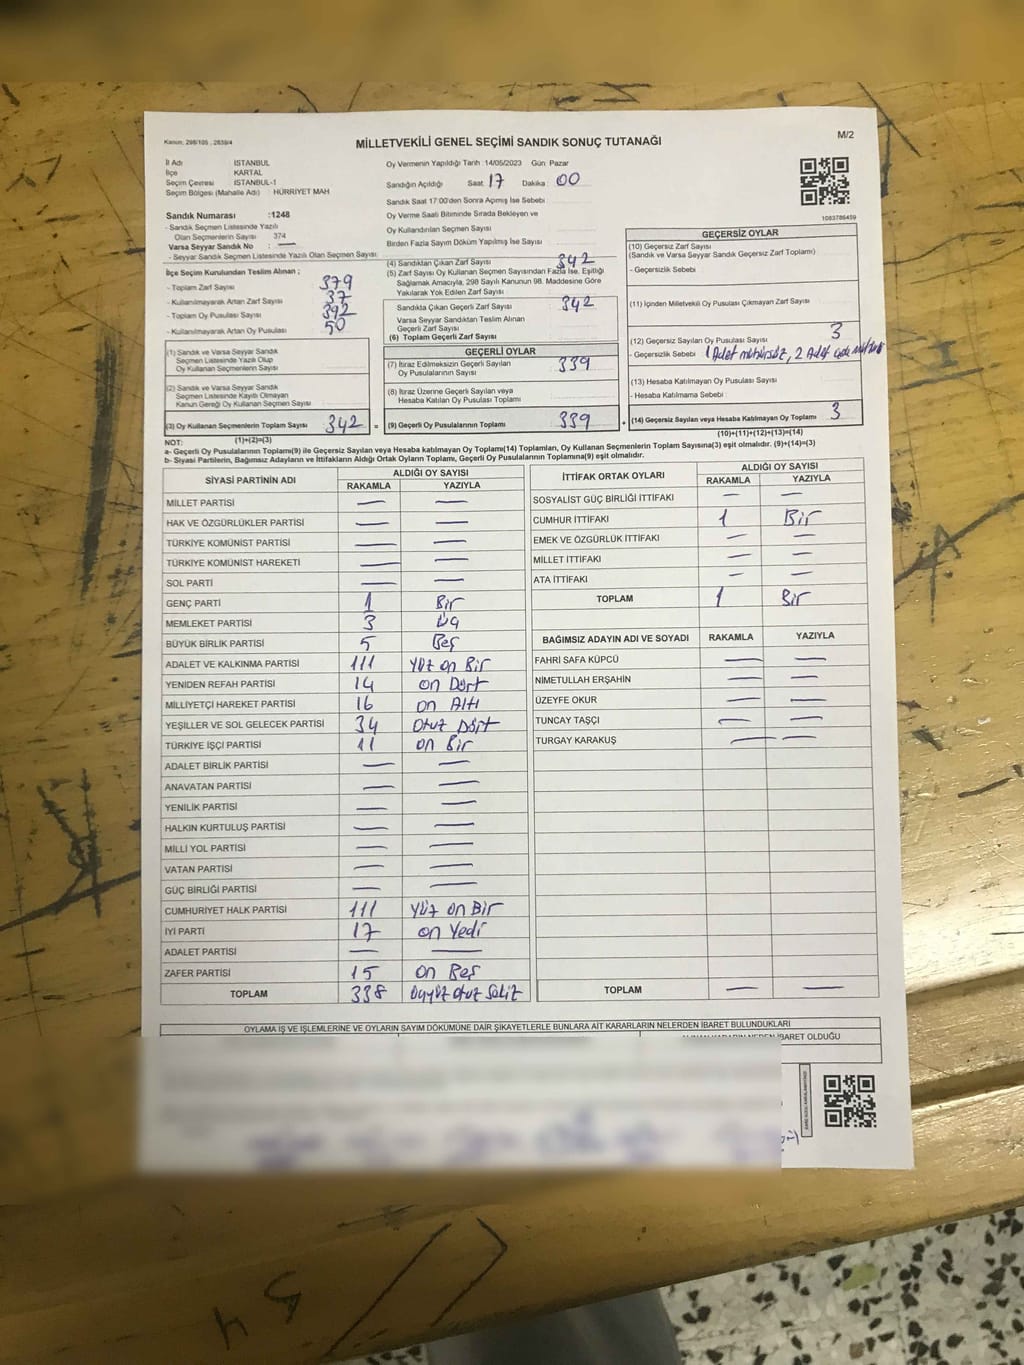 Kanun: 298/105 ; 2839/4
MİLLETVEKİLİ GENEL SEÇİMİ SANDIK SONUÇ TUTANAĞI
M/2
İl Adı İSTANBUL
İlçe KARTAL
Seçim Çevresi İSTANBUL-1
Seçim Bölgesi (Mahalle Adı) : HÜRRİYET MAH
Sandık Numarası :1248
- Sandık Seçmen Listesinde Yazılı
Olan Seçmenlerin Sayısı 374
Varsa Seyyar Sandık No : —
- Seyyar Sandık Seçmen Listesinde Yazılı Olan Seçmen Sayısı
İlçe Seçim Kurulundan Teslim Alınan ;
- Toplam Zarf Sayısı 379
- Kullanılmayarak Artan Zarf Sayısı 37
- Toplam Oy Pusulası Sayısı 392
- Kullanılmayarak Artan Oy Pusulası 50
(1) Sandık ve Varsa Seyyar Sandık
Seçmen Listesinde Yazılı Olup
Oy Kullanan Seçmenlerin Sayısı
(2) Sandık ve Varsa Seyyar Sandık
Seçmen Listesinde Kayıtlı Olmayan
Kanun Gereği Oy Kullanan Seçmen Sayısı
(3) Oy Kullanan Seçmenlerin Toplam Sayısı 342 =
(1)+(2)=(3)
Oy Vermenin Yapıldığı Tarih :14/05/2023 Gün Pazar
Sandığın Açıldığı Saat: 17 Dakika : 00
Sandık Saat 17:00'den Sonra Açılmış İse Sebebi
Oy Verme Saati Bitiminde Sırada Bekleyen ve
Oy Kullandırılan Seçmen Sayısı
Birden Fazla Sayım Döküm Yapılmış İse Sayısı
(4) Sandıktan Çıkan Zarf Sayısı 342
(5) Zarf Sayısı Oy Kullanan Seçmen Sayısından Fazla İse, Eşitliği
Sağlamak Amacıyla, 298 Sayılı Kanunun 98. Maddesine Göre
Yakılarak Yok Edilen Zarf Sayısı
Sandıkta Çıkan Geçerli Zarf Sayısı 342
Varsa Seyyar Sandıktan Teslim Alınan
Geçerli Zarf Sayısı
(6) Toplam Geçerli Zarf Sayısı
GEÇERLİ OYLAR
(7) İtiraz Edilmeksizin Geçerli Sayılan
Oy Pusulalarının Sayısı 339
(8) İtiraz Üzerine Geçerli Sayılan veya
Hesaba Katılan Oy Pusulası Toplamı
(9) Geçerli Oy Pusulalarının Toplamı 339 +
1083786459
GEÇERSİZ OYLAR
(10) Geçersiz Zarf Sayısı
(Sandık ve Varsa Seyyar Sandık Geçersiz Zarf Toplamı)
- Geçersizlik Sebebi
(11) İçinden Milletvekili Oy Pusulası Çıkmayan Zarf Sayısı
(12) Geçersiz Sayılan Oy Pusulası Sayısı 3
- Geçersizlik Sebebi 1 Adet mühürsüz, 2 Adet
(13) Hesaba Katılmayan Oy Pusulası Sayısı
- Hesaba Katılmama Sebebi
(14) Geçersiz Sayılan veya Hesaba Katılmayan Oy Toplamı 3
(10)+(11)+(12)+(13)=(14)
NOT:
a- Geçerli Oy Pusulalarının Toplamı(9) ile Geçersiz Sayılan veya Hesaba katılmayan Oy Toplamı(14) Toplamları, Oy Kullanan Seçmenlerin Toplam Sayısına(3) eşit olmalıdır. (9)+(14)=(3)
b- Siyasi Partilerin, Bağımsız Adayların ve İttifakların Aldığı Ortak Oyların Toplamı, Geçerli Oy Pusulalarının Toplamına(9) eşit olmalıdır.
SİYASİ PARTİNİN ADI ALDIĞI OY SAYISI
RAKAMLA YAZIYLA
MİLLET PARTİSİ — —
HAK VE ÖZGÜRLÜKLER PARTİSİ — —
TÜRKİYE KOMÜNİST PARTİSİ — —
TÜRKİYE KOMÜNİST HAREKETİ — —
SOL PARTİ — —
GENÇ PARTİ 1 Bir
MEMLEKET PARTİSİ 3 Üç
BÜYÜK BİRLİK PARTİSİ 5 Beş
ADALET VE KALKINMA PARTİSİ 111 Yüz on Bir
YENİDEN REFAH PARTİSİ 14 on Dört
MİLLİYETÇİ HAREKET PARTİSİ 16 on Altı
YEŞİLLER VE SOL GELECEK PARTİSİ 34 Otuz Dört
TÜRKİYE İŞÇİ PARTİSİ 11 on Bir
ADALET BİRLİK PARTİSİ — —
ANAVATAN PARTİSİ — —
YENİLİK PARTİSİ — —
HALKIN KURTULUŞ PARTİSİ — —
MİLLİ YOL PARTİSİ — —
VATAN PARTİSİ — —
GÜÇ BİRLİĞİ PARTİSİ — —
CUMHURİYET HALK PARTİSİ 111 Yüz on Bir
İYİ PARTİ 17 on Yedi
ADALET PARTİSİ — —
ZAFER PARTİSİ 15 on Beş
TOPLAM 338 Üçyüz otuz Sekiz
İTTİFAK ORTAK OYLARI ALDIĞI OY SAYISI
RAKAMLA YAZIYLA
SOSYALİST GÜÇ BİRLİĞİ İTTİFAKI — —
CUMHUR İTTİFAKI 1 Bir
EMEK VE ÖZGÜRLÜK İTTİFAKI — —
MİLLET İTTİFAKI — —
ATA İTTİFAKI — —
TOPLAM 1 Bir
BAĞIMSIZ ADAYIN ADI VE SOYADI RAKAMLA YAZIYLA
FAHRİ SAFA KÜPCÜ — —
NİMETULLAH ERŞAHİN — —
ÜZEYFE OKUR — —
TUNCAY TAŞÇI — —
TURGAY KARAKUŞ — —
TOPLAM — —
OYLAMA İŞ VE İŞLEMLERİNE VE OYLARIN SAYIM DÖKÜMÜNE DAİR ŞİKAYETLERLE BUNLARA AİT KARARLARIN NELERDEN İBARET BULUNDUKLARI
İBARET OLDUĞU